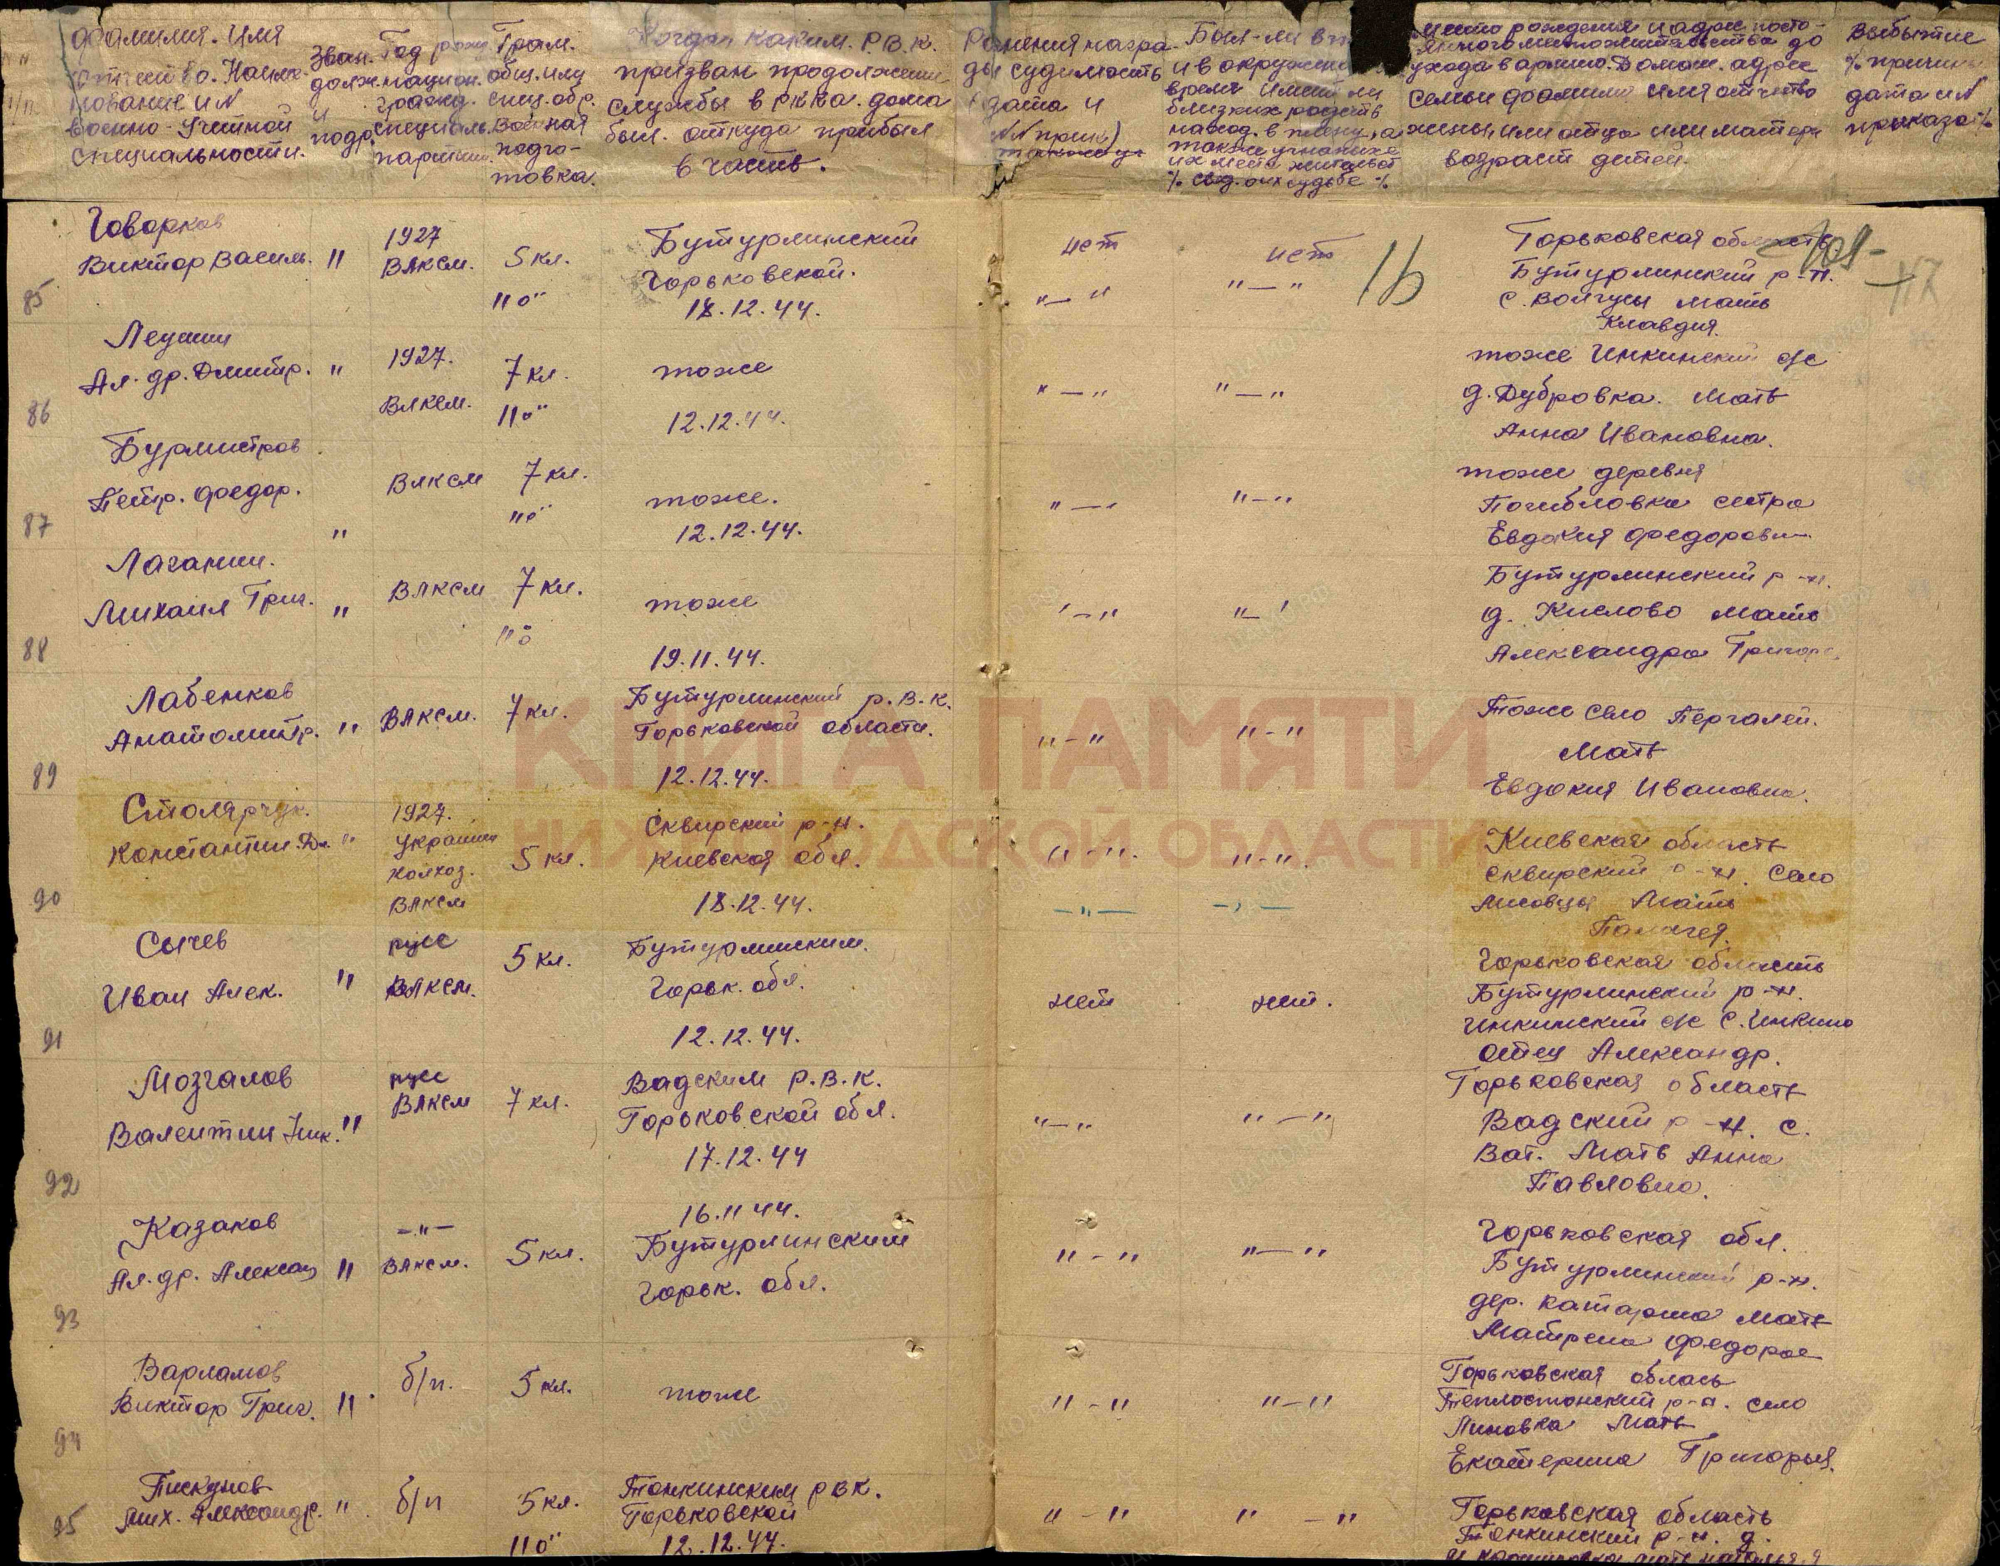 фамилия. Имя
отчество. Наиме-
нование и №
военно-учетной
специальности.
Зван.
должн.
и
подр.
Год рожд.
национ.
гражд.
специальн.
партийн.
Грам.
общ. или
спец. обр.
Военная
подго-
товка.
Когда каким. Р.В.К.
призван продолжении
службы в РККА. дома
был. откуда прибыл
в часть.
Ранения награ-
ды судимость
дата и
№№ прик)
Был-ли в
и в окружен
время имеет ли
близких родств
наход. в плену, а
также
их места жительст
% свед. о их судьбе %
место рождения и адрес посто-
янного местожительства до
ухода в армию. Домаш. адрес
семьи фамилия имя отчество
жены, или отца или матери
возраст детей.
Выбытие
% причина
дата и №
приказа %
85
Говорков
Виктор Василь. "
1927
ВЛКСМ.
5 кл.
"о"
Бутурлинский
Горьковской.
18.12.44.
нет
" — "
нет
" — "
16
Горьковская область
Бутурлинский р-н.
с. Мать
Клавдия.
86
Леушин
Ал-др. Дмитр. "
1927.
ВЛКСМ.
7 кл.
"о"
тоже
12.12.44.
" — "
" — "
тоже Инкинский с/с
д. Дубровка. Мать
Анна Ивановна.
87
Бурмистров
Петр. Федор. "
ВЛКСМ
7 кл.
"о"
тоже.
12.12.44.
" — "
" — "
тоже деревня
Погибловка сестра
Евдокия Федоровн
88
Логанин.
Михаил Григ. "
ВЛКСМ
7 кл.
"о
тоже
19.11.44.
" — "
" — "
Бутурлинский р-н.
д. Кислово мать
Александра Григорь
89
Лабенков
"
ВЛКСМ.
7 кл.
Бутурлинский р.В.К.
Горьковской области.
12.12.44.
" - "
" - "
Тоже село Пергалей.
Мать
Евдокия Ивановна.
90
Столярчук.
Константин. "
1927.
украинец
колхоз.
ВЛКСМ
5 кл.
Сквирский р-н.
Киевская обл.
18.12.44.
" - ".
" - ".
— " —
— " —
Киевская область
Сквирский р-н. Село
Лисовцы Мать
91
Сычев
Иван Алек. "
русс
ВЛКСМ.
5 кл.
Бутурлинским.
Горьк. обл.
12.12.44.
нет
нет.
Горьковская область
Бутурлинский р-н.
Инкинский с/с с. Инкино
отец Александр.
92
Мозгалов
Валентин Ник. "
русс
ВЛКСМ
7 кл.
Вадским Р.В.К.
Горьковской обл.
17.12.44
" — "
" — "
Горьковская область
Вадский р-н. с.
Ват. Мать Анна
Павловна.
93
Казаков
Ал-др. Алексан "
— " —
ВЛКСМ.
5 кл.
16.11 44.
Бутурлинским
Горьк. обл.
" - "
" — "
Горьковская обл.
Бутурлинский р-н.
дер. Катарша мать
Матрена Федоров
94
Варламов
Виктор Григ. "
б/п.
5 кл.
тоже
" - "
" - "
Горьковская облась
Теплостанский р-н. село
Липовка Мать
Екатерина Григорьев.
95
Пискунов
Мих. Александр. "
б/п
5 кл.
"о"
Тонкинским РВК.
Горьковской
12.12.44.
" - "
" - "
Горьковская область
Тонкинский р-н. д.
КНИГА ПАМЯТИ
НИЖЕГОРОДСКОЙ ОБЛАСТИ